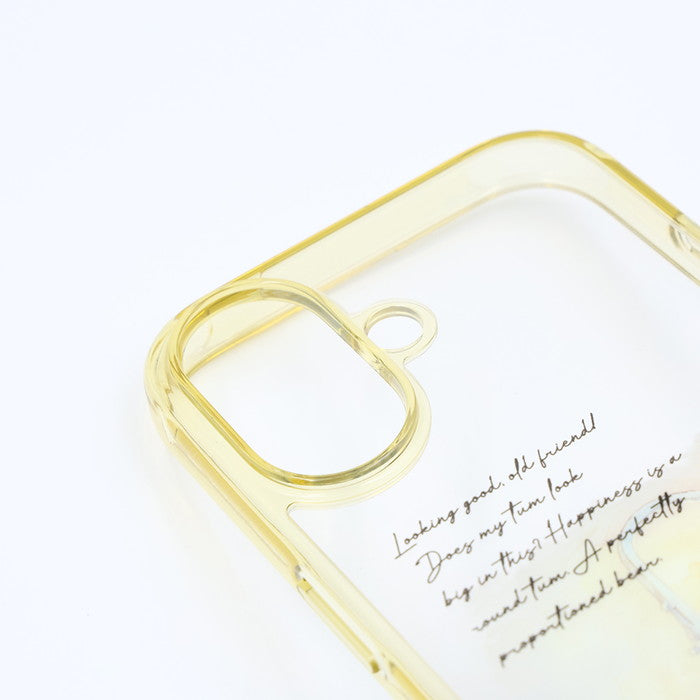 Looking good, old friend!
Does my tum look
big in this? Happiness is a
round tum. A perfectly
proportioned bear.